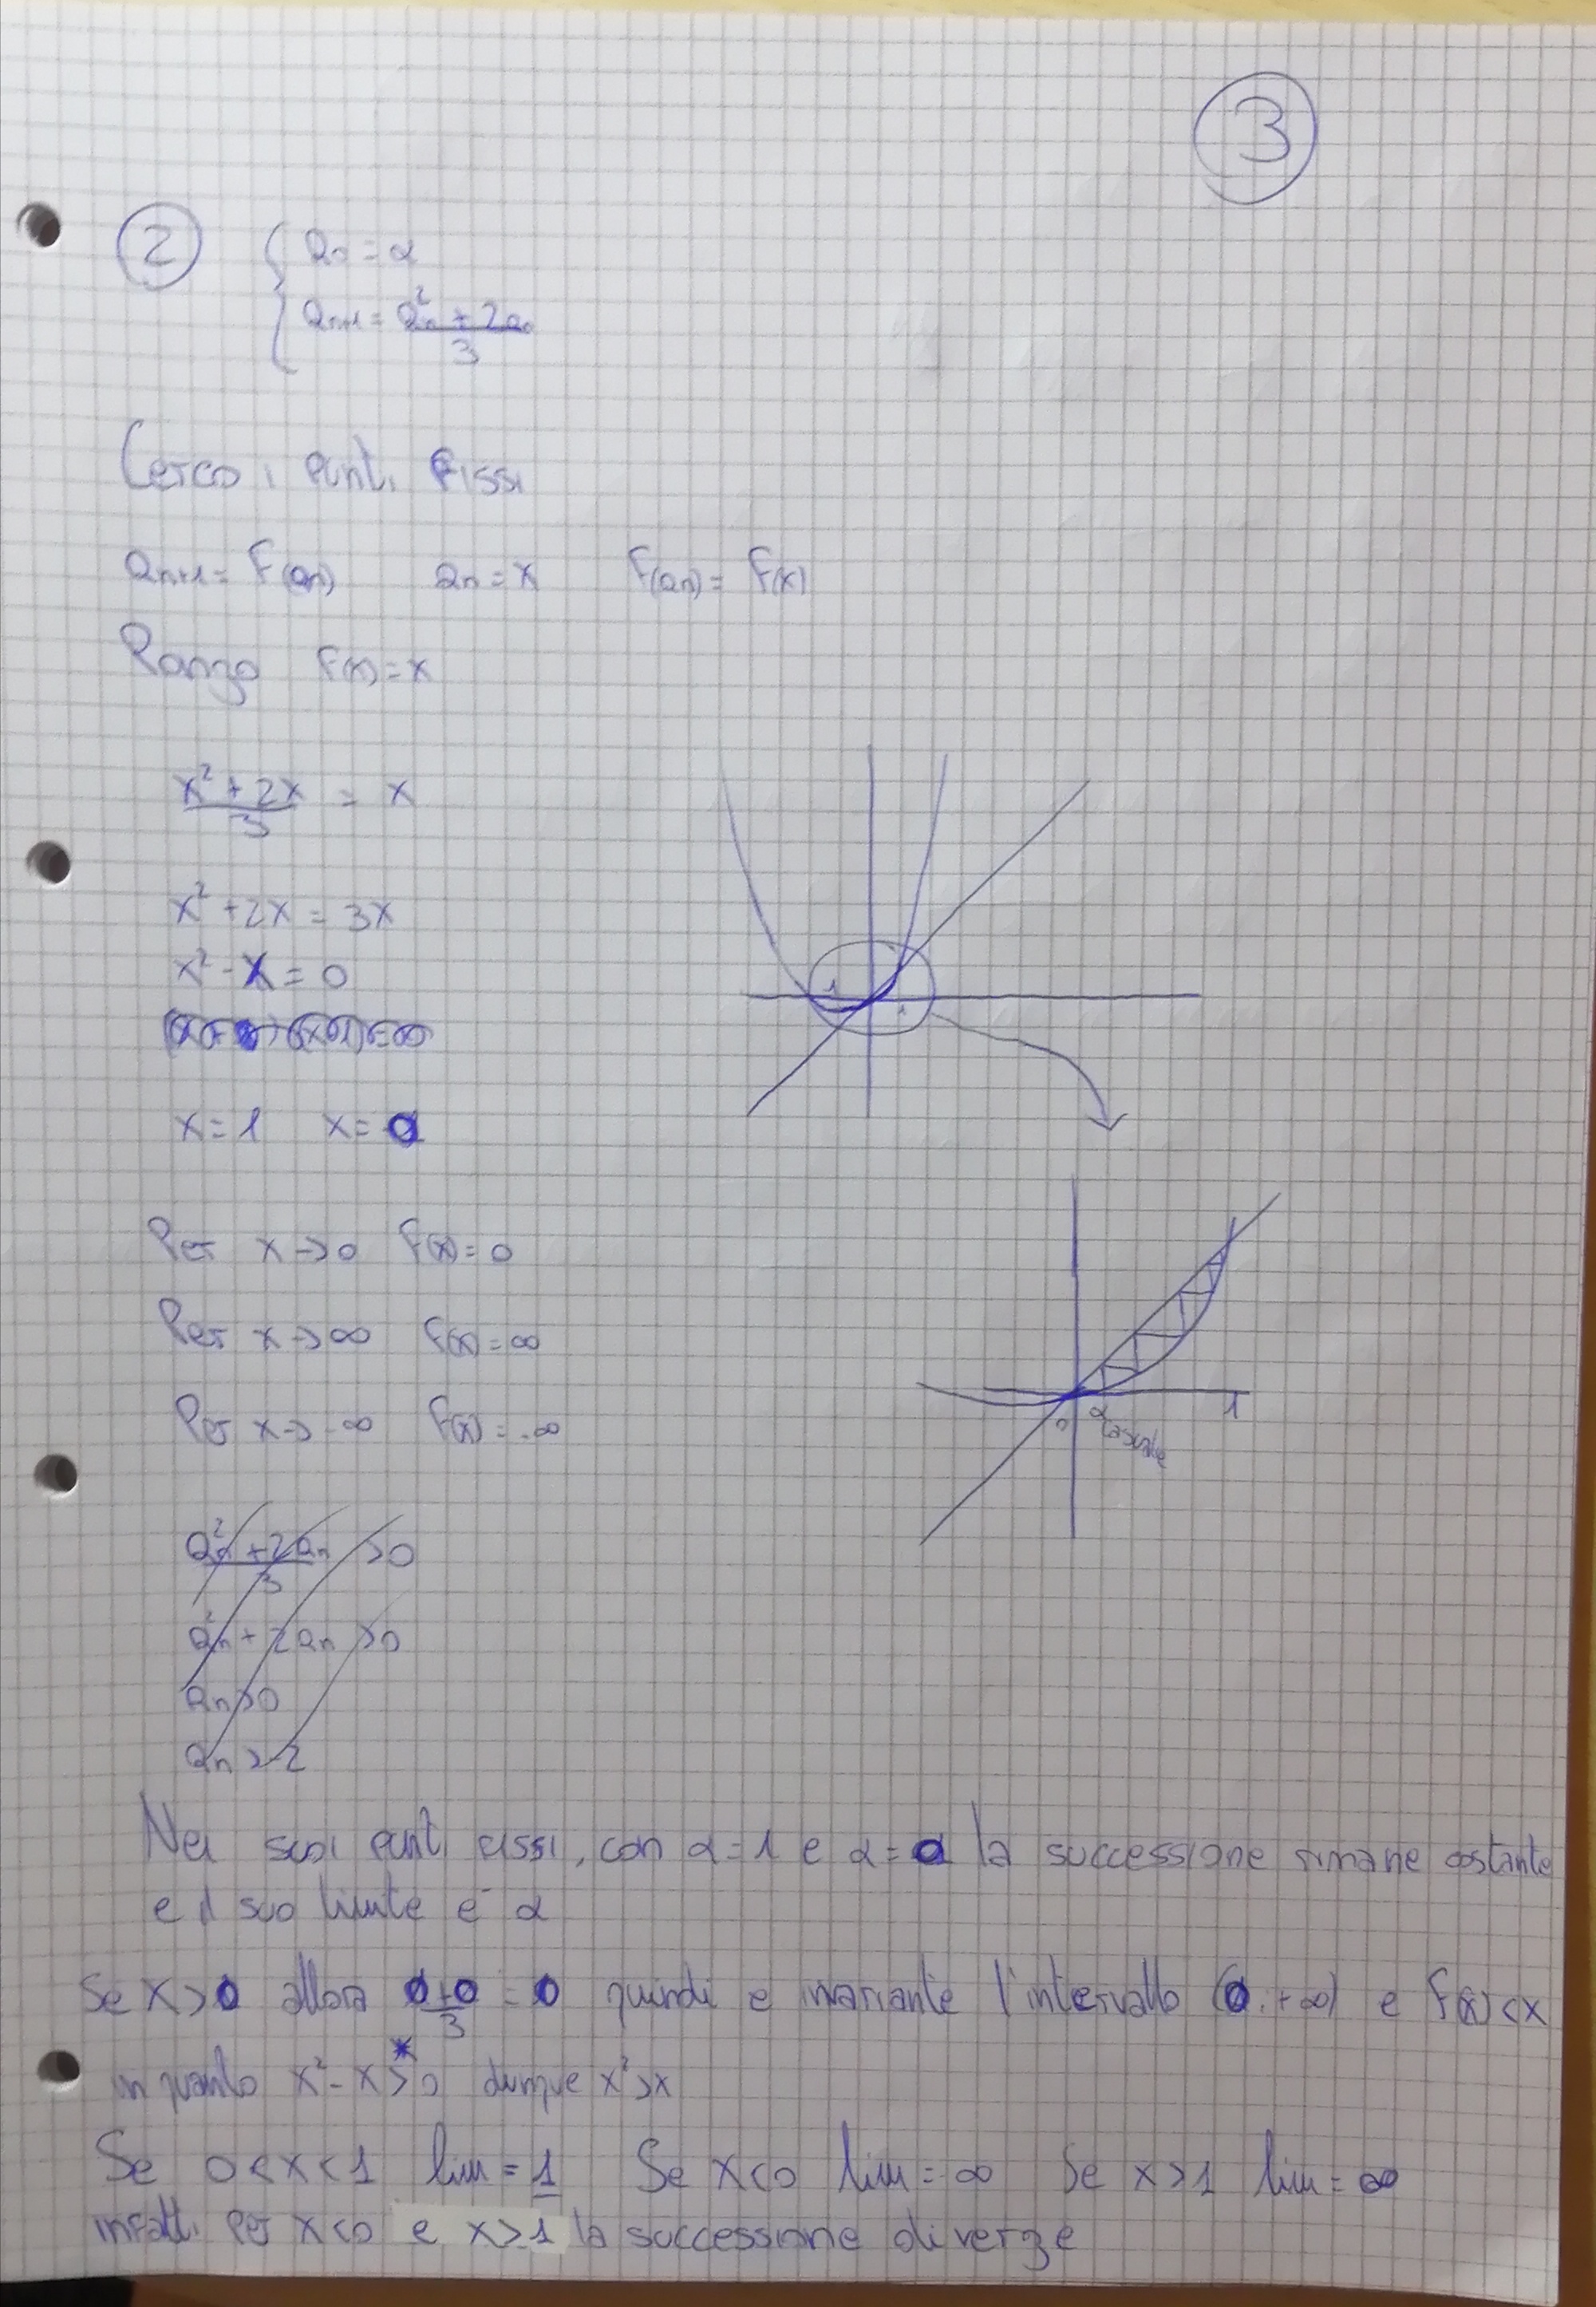 3
2 { a₀ = α
aₙ₊₁ = (aₙ² + 2aₙ)/3
Cerco i punti fissi
aₙ₊₁ = f(aₙ)   aₙ = x   f(aₙ) = f(x)
Pongo f(x) = x
(x² + 2x)/3 = x
x² + 2x = 3x
x² - x = 0
x = 1   x = 0
1
1
Per x → 0   f(x) = 0
Per x → ∞   f(x) = ∞
Per x → -∞   f(x) = -∞
0 α casuale 1
(aₙ² + 2aₙ)/3 > 0
aₙ² + 2aₙ > 0
aₙ > 0
aₙ > -2
Nei suoi punti fissi, con α = 1 e α = 0 la successione rimane costante
e il suo limite è α
Se x > 0 allora (0+0)/3 = 0 quindi e invariante l'intervallo (0, +∞) e f(x) < x
in quanto x² - x >* 0 dunque x² > x
Se 0 < x < 1 lim = 1   Se x < 0 lim = ∞   Se x > 1 lim = ∞
infatti per x < 0 e x > 1 la successione diverge